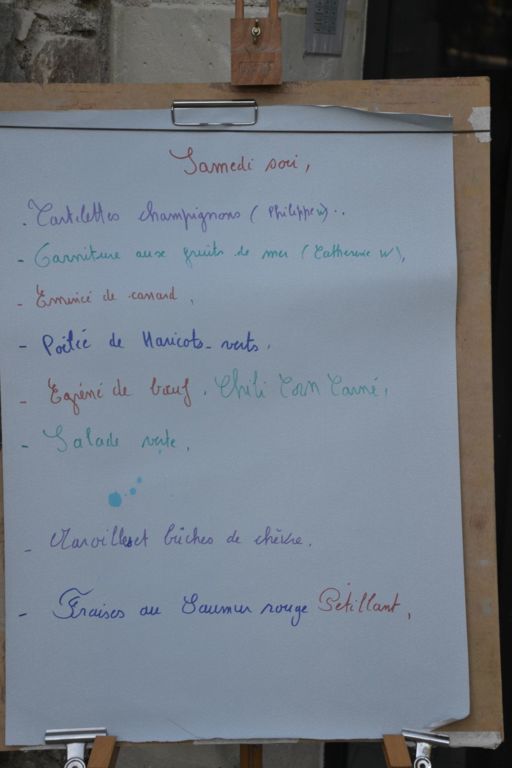 Samedi soir,
- Tartelettes champignons (Philippe W)..
- Garniture aux fruits de mer (Catherine W),
- Emincé de canard,
- Poêlée de Haricots-verts.
- Egréné de bœuf. Chili Corn Carné,
- Salade verte,
- Maroilles et bûches de chèvre.
- Fraises au Saumur rouge Pétillant,